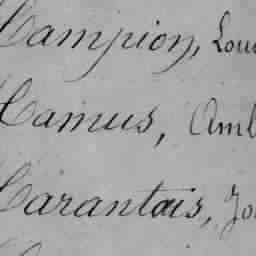 Campion, Lou
Camus, Amb
Carantois, Jo